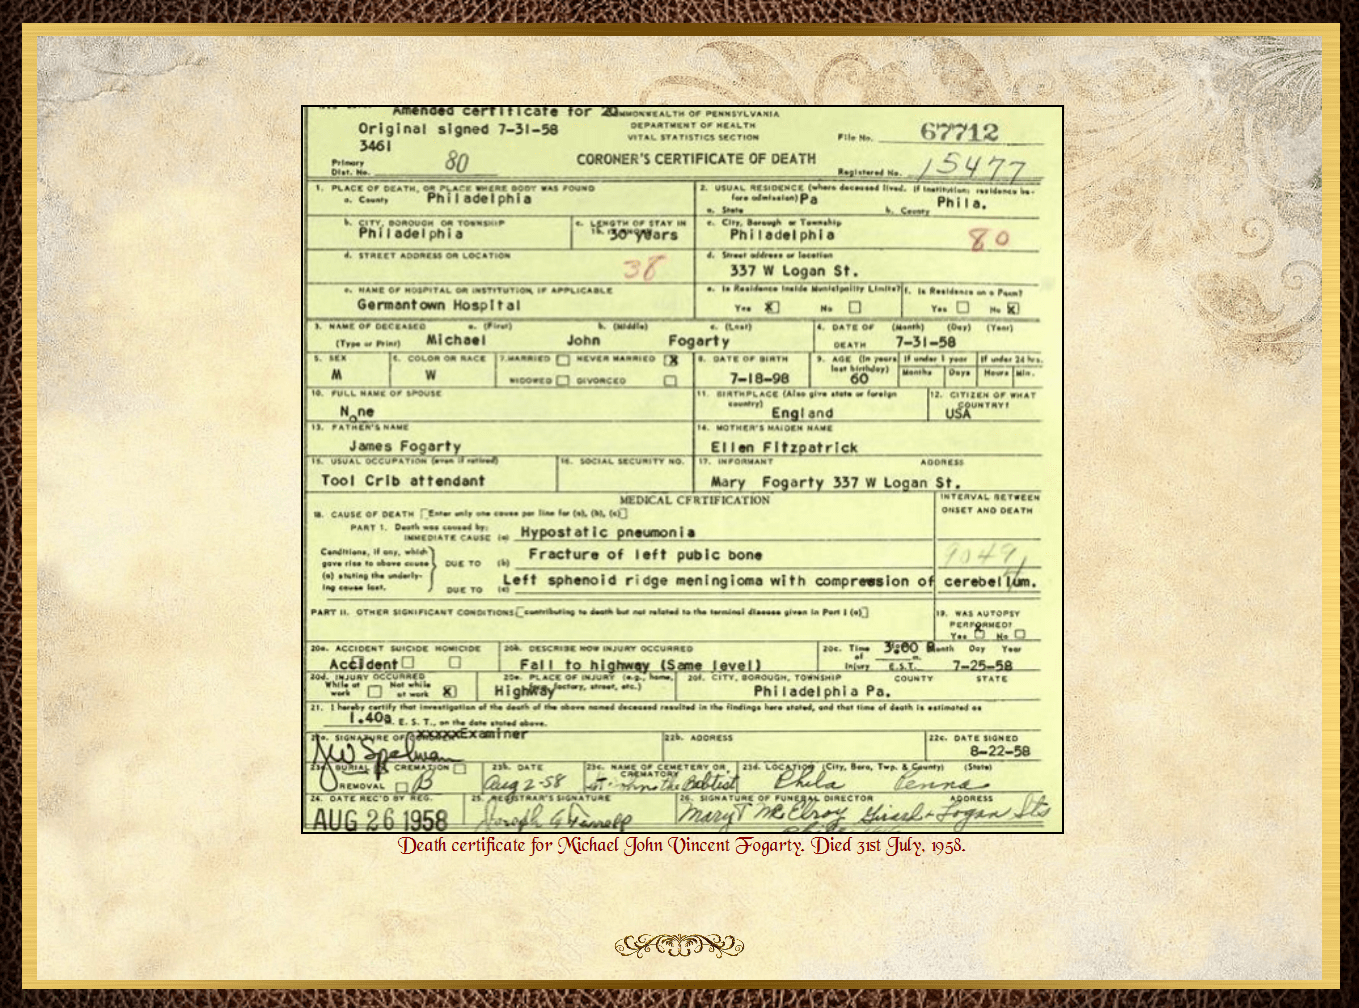 Amended certificate for 20 COMMONWEALTH OF PENNSYLVANIA
Original signed 7-31-58 DEPARTMENT OF HEALTH
VITAL STATISTICS SECTION File No. 67712
3461
Primary Dist. No. 80 CORONER'S CERTIFICATE OF DEATH Registered No. 15477
1. PLACE OF DEATH, OR PLACE WHERE BODY WAS FOUND 2. USUAL RESIDENCE (where deceased lived. If institution: residence before admission)
a. County Philadelphia a. State Pa b. County Phila.
b. CITY, BOROUGH OR TOWNSHIP c. LENGTH OF STAY IN c. City, Borough or Township
Philadelphia 30 years Philadelphia 80
d. STREET ADDRESS OR LOCATION 38 d. Street address or location
337 W Logan St.
e. NAME OF HOSPITAL OR INSTITUTION, IF APPLICABLE e. Is Residence Inside Municipality Limits? f. Is Residence on a Farm?
Germantown Hospital Yes X No Yes No X
3. NAME OF DECEASED a. (First) b. (Middle) c. (Last) 4. DATE OF DEATH (Month) (Day) (Year)
(Type or Print) Michael John Fogarty 7-31-58
5. SEX 6. COLOR OR RACE 7. MARRIED NEVER MARRIED X 8. DATE OF BIRTH 9. AGE (In years last birthday) If under 1 year If under 24 hrs.
M W WIDOWED DIVORCED 7-18-98 60 Months Days Hours Min.
10. FULL NAME OF SPOUSE 11. BIRTHPLACE (Also give state or foreign country) 12. CITIZEN OF WHAT COUNTRY?
None England USA
13. FATHER'S NAME 14. MOTHER'S MAIDEN NAME
James Fogarty Ellen Fitzpatrick
15. USUAL OCCUPATION (even if retired) 16. SOCIAL SECURITY NO. 17. INFORMANT ADDRESS
Tool Crib attendant Mary Fogarty 337 W Logan St.
MEDICAL CERTIFICATION INTERVAL BETWEEN
18. CAUSE OF DEATH [Enter only one cause per line for (a), (b), (c)] ONSET AND DEATH
PART 1. Death was caused by:
IMMEDIATE CAUSE (a) Hypostatic pneumonia
Conditions, if any, which gave rise to above cause (a) stating the underlying cause last.
DUE TO (b) Fracture of left pubic bone
DUE TO (c) Left sphenoid ridge meningioma with compression of cerebellum.
PART II. OTHER SIGNIFICANT CONDITIONS [contributing to death but not related to the terminal disease given in Part I (a)] 19. WAS AUTOPSY
PERFORMED?
Yes X No
20a. ACCIDENT SUICIDE HOMICIDE 20b. DESCRIBE HOW INJURY OCCURRED 20c. Time of Injury Month Day Year
Accident Fall to highway (Same level) E.S.T. 7-25-58
20d. INJURY OCCURRED 20e. PLACE OF INJURY (e.g., home, factory, street, etc.) 20f. CITY, BOROUGH, TOWNSHIP COUNTY STATE
While at work Not while at work X Highway Philadelphia Pa.
21. I hereby certify that investigation of the death of the above named deceased resulted in the findings here stated, and that time of death is estimated as
1.40a. E. S. T., on the date stated above.
22a. SIGNATURE OF xxxxxExaminer 22b. ADDRESS 22c. DATE SIGNED
JW Spelman 8-22-58
23a BURIAL CREMATION 23b. DATE 23c. NAME OF CEMETERY OR CREMATORY 23d. LOCATION (City, Boro, Twp. & County) (State)
REMOVAL B Aug 2-58 St. Johns the Babtist Phila Penna
24. DATE REC'D BY REG. 25. REGISTRAR'S SIGNATURE 26. SIGNATURE OF FUNERAL DIRECTOR ADDRESS
AUG 26 1958 Joseph G Farrell Mary T McElroy Girard & Logan Sts
Death certificate for Michael John Vincent Fogarty. Died 31st July, 1958.